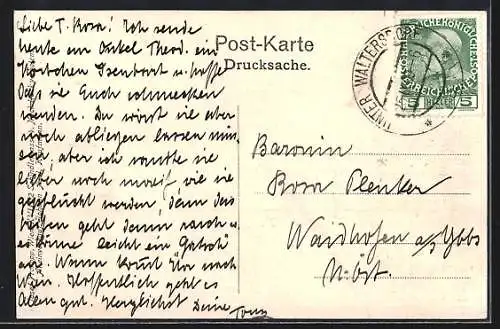 Liebe T. Rosa! Ich sende
heute an Onkel Theod. ein
Körbchen Isenbart u. hoffe
dass sie Euch schmecken
werden. Du wirst sie aber
noch abliegen lassen müs-
sen, aber ich wollte sie
lieber noch wie sie
gepflückt werden, denn das
geht dann rasch u.
es könne leicht ein
an. Wann kommt Ihr nach
Wien. Hoffentlich geht es
Allen gut. Herzlichst Deine
Tony
Post-Karte
Drucksache.
UNTER WALTERSDORF
5 HELLER 5
Baronin
Rosa Plenker
Waidhofen a/Ybbs
N. Öst.